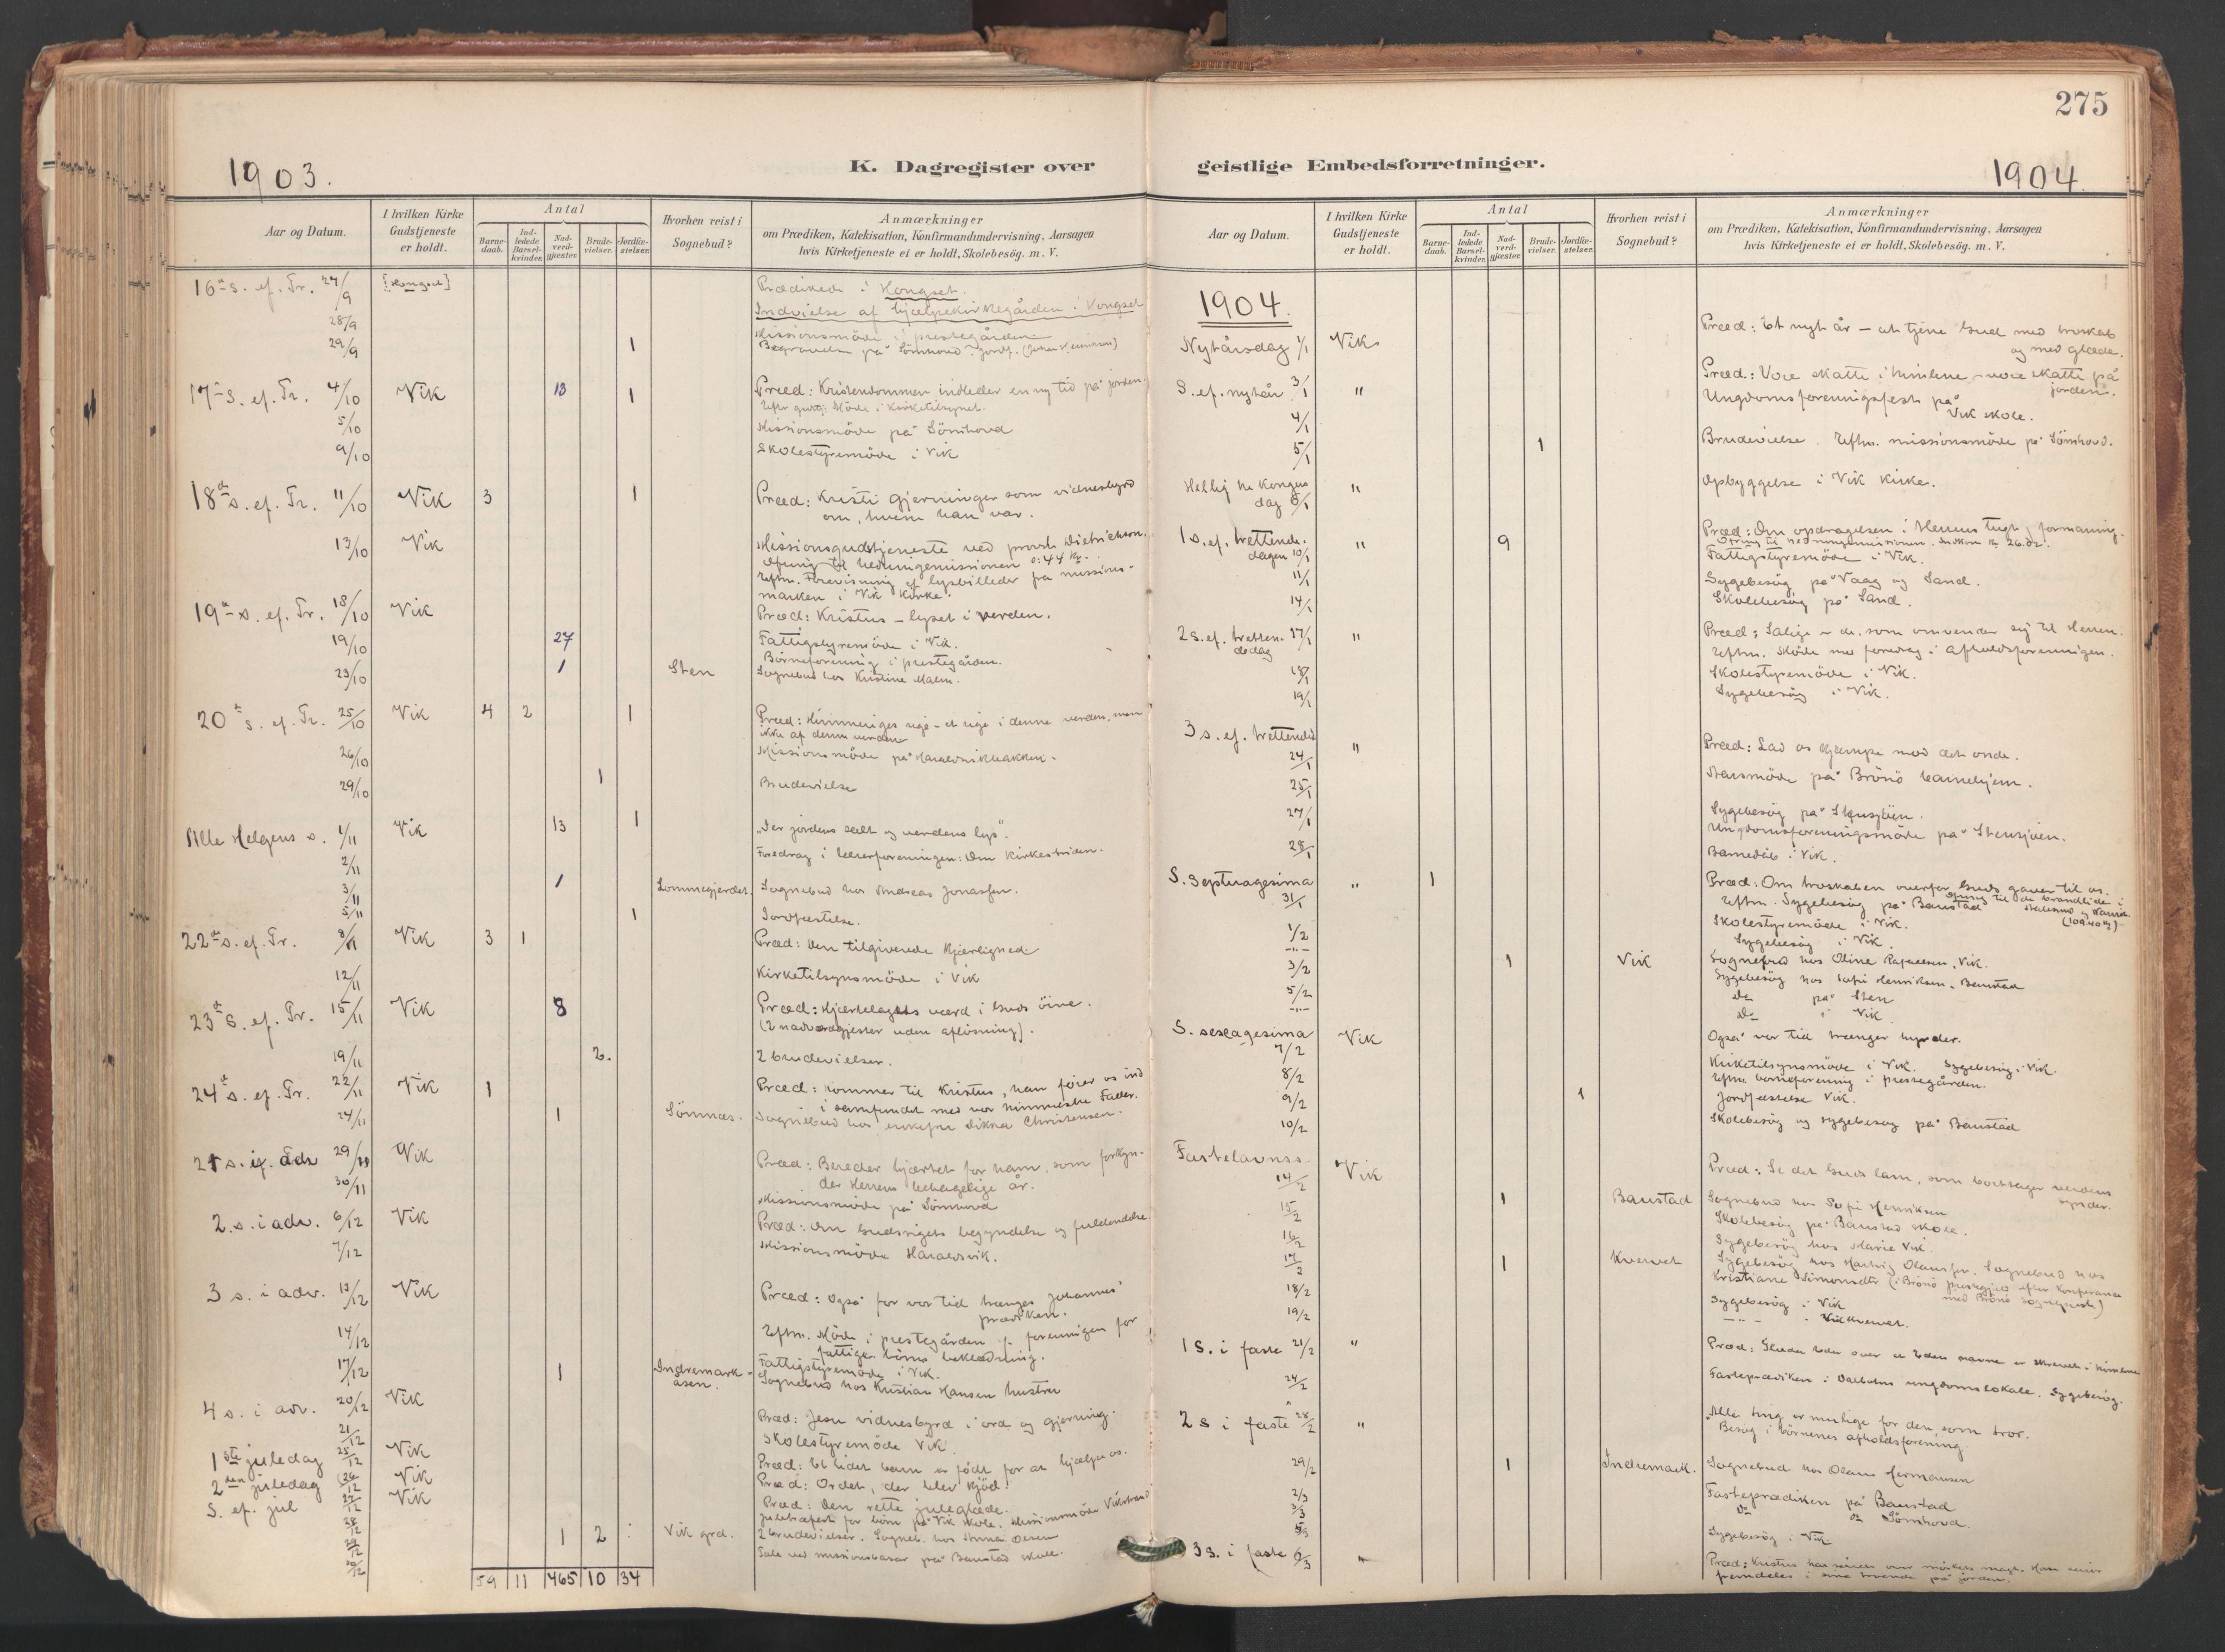 275
1903.
K. Dagregister over geistlige Embedsforretninger.
1904.
Aar og Datum.
I hvilken Kirke Gudstjeneste er holdt.
Antal
Barne-daab.
Ind-ledede Barsel-kvinder.
Nad-verd-gjester.
Brude-vielser.
Jordfæ-stelser.
Hvorhen reist i Sognebud?
Anmærkninger
om Prædiken, Katekisation, Konfirmandundervisning, Aarsagen
hvis Kirketjeneste ei er holdt, Skolebesög. m. V.
16de s. ef. Tr. 27/9 [Hongset] Prædikede i Hongset.
28/9 Indvielse af hjælpekirkegården i Hongset
Missionsmöde i prestegården
29/9 1 Begravelse på Sömhovd
17de s. ef. Tr. 4/10 Vik 13 1 Præd: Kristendommen indleder en ny tid på jorden.
Möde i kirketilsynet.
5/10 Missionsmöde på Sömhovd
9/10 Skolestyremöde i Vik
18de s. ef. Tr. 11/10 Vik 3 1 Præd: Kristi gjerninger som vidnesbyrd
om, hvem han var.
13/10 Vik Missionsgudstjeneste ved provst Dietrichson.
Ofring til hedningemissionen 44 Kr.
Eftm. Forevisning af lysbilleder fra missions-
marken i Vik Kirke.
19de s. ef. Tr. 18/10 Vik Præd: Kristus – lyset i verden.
19/10 27 Fattigstyremöde i Vik.
Börneforening i prestegården.
23/10 1 Sten Sognebud hos Kristine Malm.
20de s. ef. Tr. 25/10 Vik 4 2 1 Præd: Himmeriges rige – et rige i denne verden, men
ikke af denne verden
26/10 Missionsmöde på
29/10 1 Brudevielse
Alle Helgens s. 1/11 Vik 13 1 "I er jordens salt og verdens lys".
2/11 Foredrag i lærerforeningen: Om Kirkestriden.
3/11 1 Lommegjerdet. Sognebud hos Andreas Jonassen.
5/11 1 Jordfæstelse.
22de s. ef. Tr. 8/11 Vik 3 1 Præd: Den tilgivende kjærlighed
12/11 Kirketilsynsmöde i Vik
23de s. ef. Tr. 15/11 Vik 8 Præd: Hjertelagets værd i Guds öine.
(2 nadverdgjester uden aflösning).
19/11 2. 2 brudevielser.
24de s. ef. Tr. 22/11 Vik 1 Præd: kommer til Kristus, han föier os ind
i samfundet med vor himmelske Fader.
24/11 1 Sömnæs. Sognebud hos enkefru Dikka Christensen.
1 s. i adv 29/11 Vik Præd: Bereder hjertet for ham, som forkyn-
der Herrens behagelige år.
30/11 Missionsmöde på Sömhovd
2. s. i adv. 6/12 Vik Præd: Om Gudsrigets begyndelse og fuldendelse
7/12 Missionsmöde Haraldsvik.
3 s. i adv. 13/12 Vik Præd: Også for vor tid trænges Johannes'
prædiken.
14/12 Eftm. Möde i prestegården f. foreningen for
fattige börns beklædning.
Fattigstyremöde i Vik.
17/12 1 Indremark-åsen. Sognebud hos Kristian Hansen hustru
4 s. i adv. 20/12 Vik Præd: Jesu vidnesbyrd i ord og gjerning.
21/12 Skolestyremöde Vik.
1ste juledag 25/12 Vik Præd: Et lidet barn er födt for at hjælpe os.
2den juledag 26/12 Vik Præd: Ordet, der blev kjöd.
S. ef. jul 27/12 Vik Præd: Den rette juleglæde.
28/12 Juletræfest for börn på Vik skole. Missionsmöde Vikstrand
29/12 1 2 Vik grd. 2 brudevielser. Sogneb. hos Anna Olsen
Tale ved missionsbasar på Baustad skole.
59 11 465 10 34
Aar og Datum.
I hvilken Kirke Gudstjeneste er holdt.
Antal
Barne-daab.
Ind-ledede Barsel-kvinder.
Nad-verd-gjester.
Brude-vielser.
Jordfæ-stelser.
Hvorhen reist i Sognebud?
Anmærkninger
om Prædiken, Katekisation, Konfirmandundervisning, Aarsagen
hvis Kirketjeneste ei er holdt, Skolebesög. m. V.
1904.
Nytårsdag 1/1 Vik Præd: Et nyt år – at tjene Gud med troskab
og med glæde.
S. ef. nytår 3/1 " Præd: Vore skatte i himlene – vore skatte på
jorden.
4/1 Ungdomsforeningsfest på
Vik skole.
5/1 1 Brudevielse. Eftm. missionsmöde på Sömhovd.
Hellig tre Kongers dag 6/1 " Opbyggelse i Vik Kirke.
1 s. ef. trettende-dagen 10/1 " 9 Præd: Om opdragelsen i Herrens tugt, formaning.
Fattigstyremöde i Vik.
11/1 Sygebesög på Vaag og Sand.
14/1 Skolebesög på Sand.
2 s. ef. tretten-dedag 17/1 " Præd: Salige er de, som omvender sig til Herren.
Eftm. Möde med foredrag i Afholdsforeningen.
18/1 Skolestyremöde i Vik.
19/1 Sygebesög i Vik.
3 s. ef. trettended 24/1 " Præd: Lad os kjæmpe mod det onde.
25/1 Årsmöde på Brönö barnehjem.
27/1 Sygebesög på Stensjöen.
Ungdomsforeningsmöde på Stensjöen.
28/1 Barnedåb i Vik.
S. Septuagesima 31/1 " 1 Præd: Om troskaben overfor Guds gaver til os.
Eftm. Sygebesög på Baustad
1/2 Skolestyremöde i Vik.
-"- Sygebesög i Vik.
3/2 1 Vik Sognebud hos Oline Rafaelsen, Vik.
5/2 Sygebesög hos Sofi Henriksen, Baustad
-"- Do på Sten
Do i Vik.
S. sexagesima 7/2 Vik Også vor tid trænger hyrder.
8/2 Kirketilsynsmöde i Vik. Sygebesög i Vik.
Eftm. börneforening i prestegården.
9/2 1 Jordfæstelse Vik.
10/2 Skolebesög og sygebesög på Baustad
Fastelavnss. 14/2 Vik Præd: Se det Guds lam, som borttager verdens
synder.
15/2 1 Baustad Sognebud hos Sofi Henriksen
Skolebesög på Baustad skole.
16/2 Sygebesög hos Marie Vik.
17/2 1 Kvervet Sygebesög hos Hartvig Olausfn. Sognebud hos
Kristiane Simonsdtr (i Brönö prestegjeld efter Konferance
med Brönö sogneprest)
18/2 Sygebesög i Vik
19/2 -"- Kvervet.
1 S. i faste 21/2 " Præd: Glæder Eder over at Eders navne er skrevet i himlene
24/2 Fasteprædiken i Dalbotns ungdomslokale. Sygebesög.
2 S i faste 28/2 " Alle ting er mulige for den, som tror.
Besög i börnenes afholdsforening.
29/2 1 Indremark. Sognebud hos Olaus Hermansen
2/3 Fasteprædiken på Baustad
3/3 Do Do Sömhovd.
5/3 Sygebesög i Vik
3 S. i faste 6/3 " Præd: Kristus har seiret over mörkets magt. Han seirer
fremdeles i sine troende på jorden.